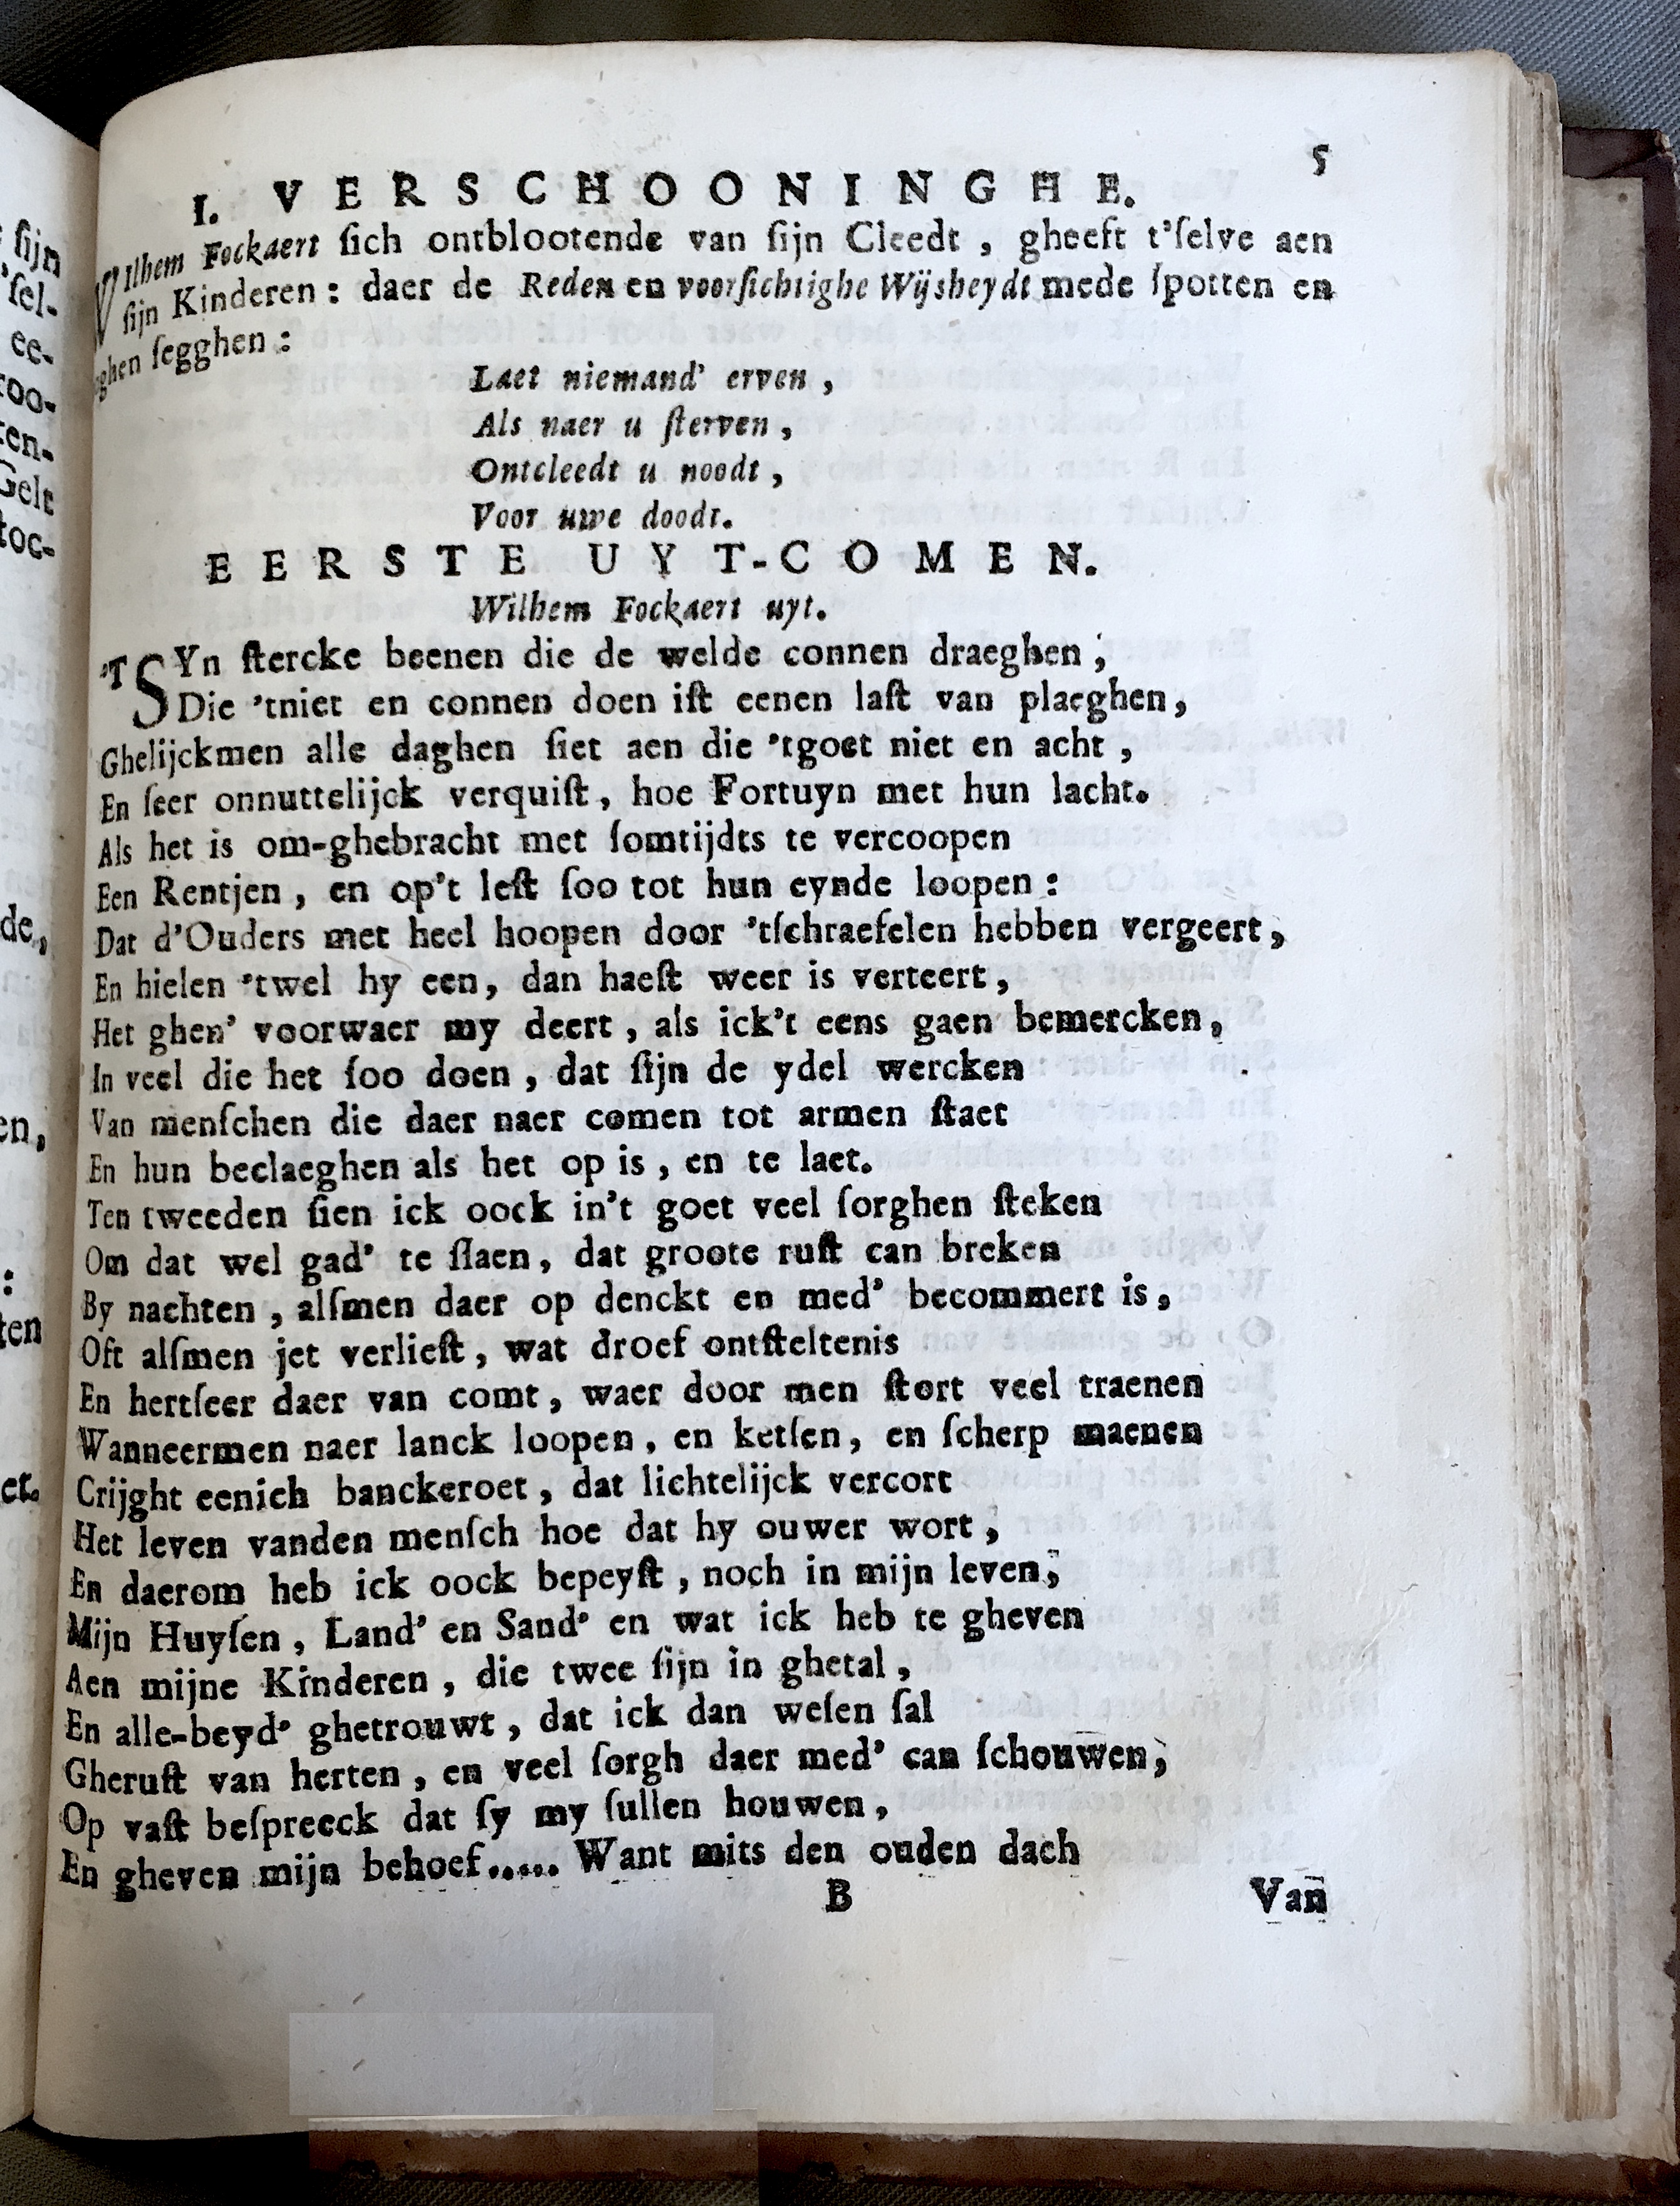 5
I. VERSCHOONINGHE.
WIlhem Fockaert ſich ontblootende van ſijn Cleedt , gheeft t'ſelve aen
ſijn Kinderen : daer de Reden en voorſichtighe Wijsheydt mede ſpotten en
ſegghen :
Laet niemand' erven ,
Als naer u ſterven ,
Ontcleedt u noodt ,
Voor uwe doodt.
EERSTE UYT-COMEN.
Wilhem Fockaert uyt.
'T SYn ſtercke beenen die de welde connen draeghen ,
Die 'tniet en connen doen iſt eenen laſt van plaeghen ,
Ghelijckmen alle daghen ſiet aen die 'tgoet niet en acht ,
En ſeer onnuttelijck verquiſt , hoe Fortuyn met hun lacht.
Als het is om-ghebracht met ſomtijdts te vercoopen
Een Rentjen , en op't leſt ſoo tot hun eynde loopen :
Dat d'Ouders met heel hoopen door 'tſchraefelen hebben vergeert ,
En hielen 'twel hy een, dan haeſt weer is verteert ,
Het ghen' voorwaer my deert , als ick't eens gaen bemercken ,
In veel die het ſoo doen , dat ſijn de ydel wercken
Van menſchen die daer naer comen tot armen ſtaet
En hun beclaeghen als het op is , en te laet.
Ten tweeden ſien ick oock in't goet veel ſorghen ſteken
Om dat wel gad' te ſlaen , dat groote ruſt can breken
By nachten , alſmen daer op denckt en med' becommert is ,
Oft alſmen jet verlieſt , wat droef ontſteltenis
En hertſeer daer van comt , waer door men ſtort veel traenen
Wanneermen naer lanck loopen , en ketſen , en ſcherp maenen
Crijght eenich banckeroet , dat lichtelijck vercort
Het leven vanden menſch hoe dat hy ouwer wort ,
En daerom heb ick oock bepeyſt , noch in mijn leven ,
Mijn Huyſen , Land' en Sand' en wat ick heb te gheven
Aen mijne Kinderen , die twee ſijn in ghetal ,
En alle-beyd' ghetrouwt , dat ick dan weſen ſal
Gheruſt van herten , en veel ſorgh daer med' can ſchouwen ,
Op vaſt beſpreeck dat ſy my ſullen houwen ,
En gheven mijn behoef..... Want mits den ouden dach
B Van